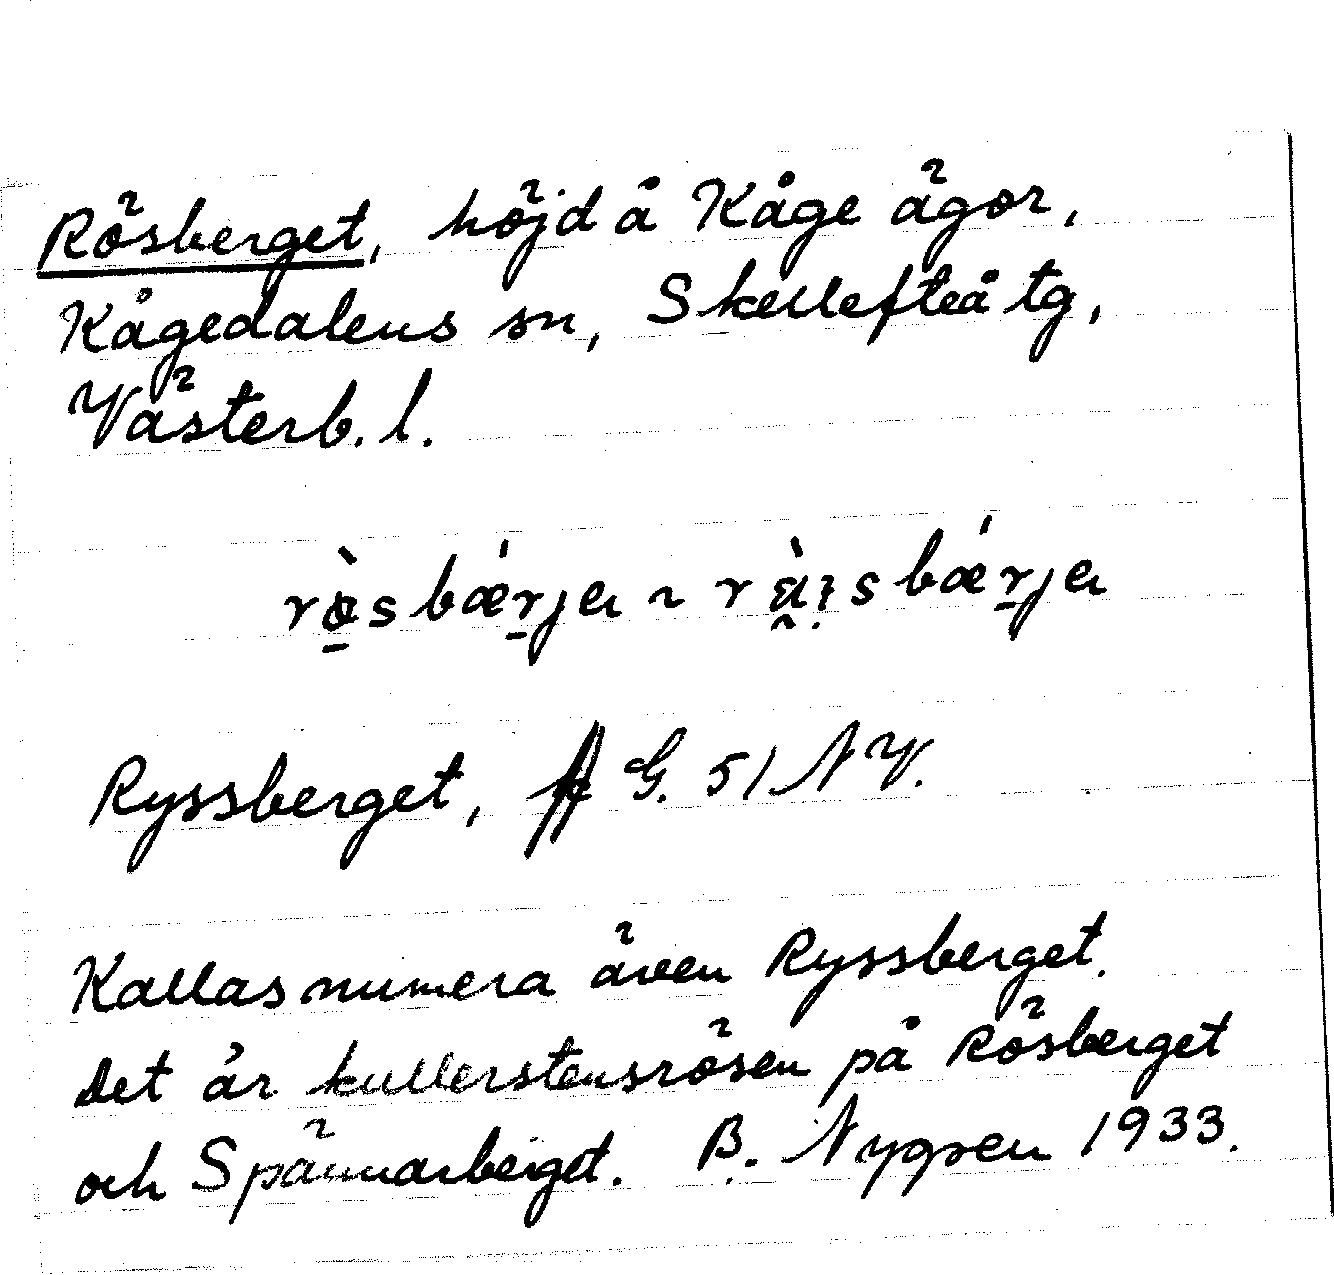 Rösberget, höjd å Kåge ägor,
Kågedalens sn, Skellefteå tg,
Västerb. l.
Ryssberget, G. 51 NV.
Kallas numera även Ryssberget.
Det är kullerstensrösen på Rösberget
och Spännarberget. B. Nygren 1933.